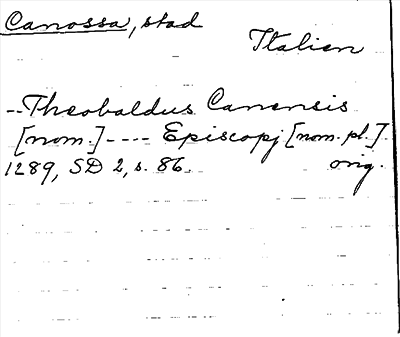 Canossa, stad
Italien
--Theobaldus Canensis
[nom.] ---- Episcopj [nom. pl.].
1289, SD 2, s. 86. orig.